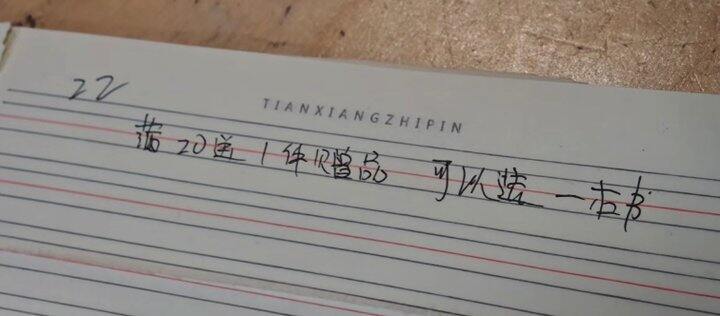 22
TIANXIANGZHIPIN
满20送1件赠品 可以送一本书